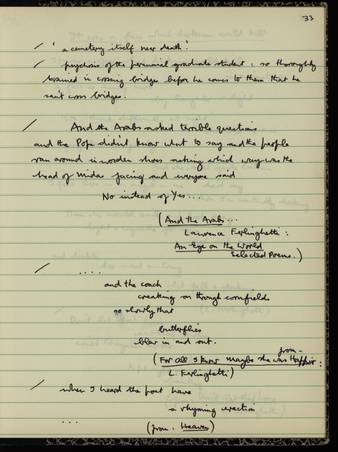 33
/ 'a cemetery itself near death'.
/ psychosis of the perennial graduate student, so thoroughly
learned in crossing bridges before he comes to them that he
can't cross bridges.
/ And the Arabs asked terrible questions
and the Pope didn't know what to say and the people
ran around in wooden shoes asking which way was the
head of Midas facing and everyone said
No instead of Yes...
(And the Arabs...
Lawrence Ferlinghetti:
An Eye on the World
Selected Poems.)
/ ....
and the coach
creaking on through cornfields
so slowly that
butterflies
blow in and out.
from -
(For all I know maybe she was Happier:
L. Ferlinghetti)
/ when I heard the poet have
a rhyming erection
....
(from: Heaven)